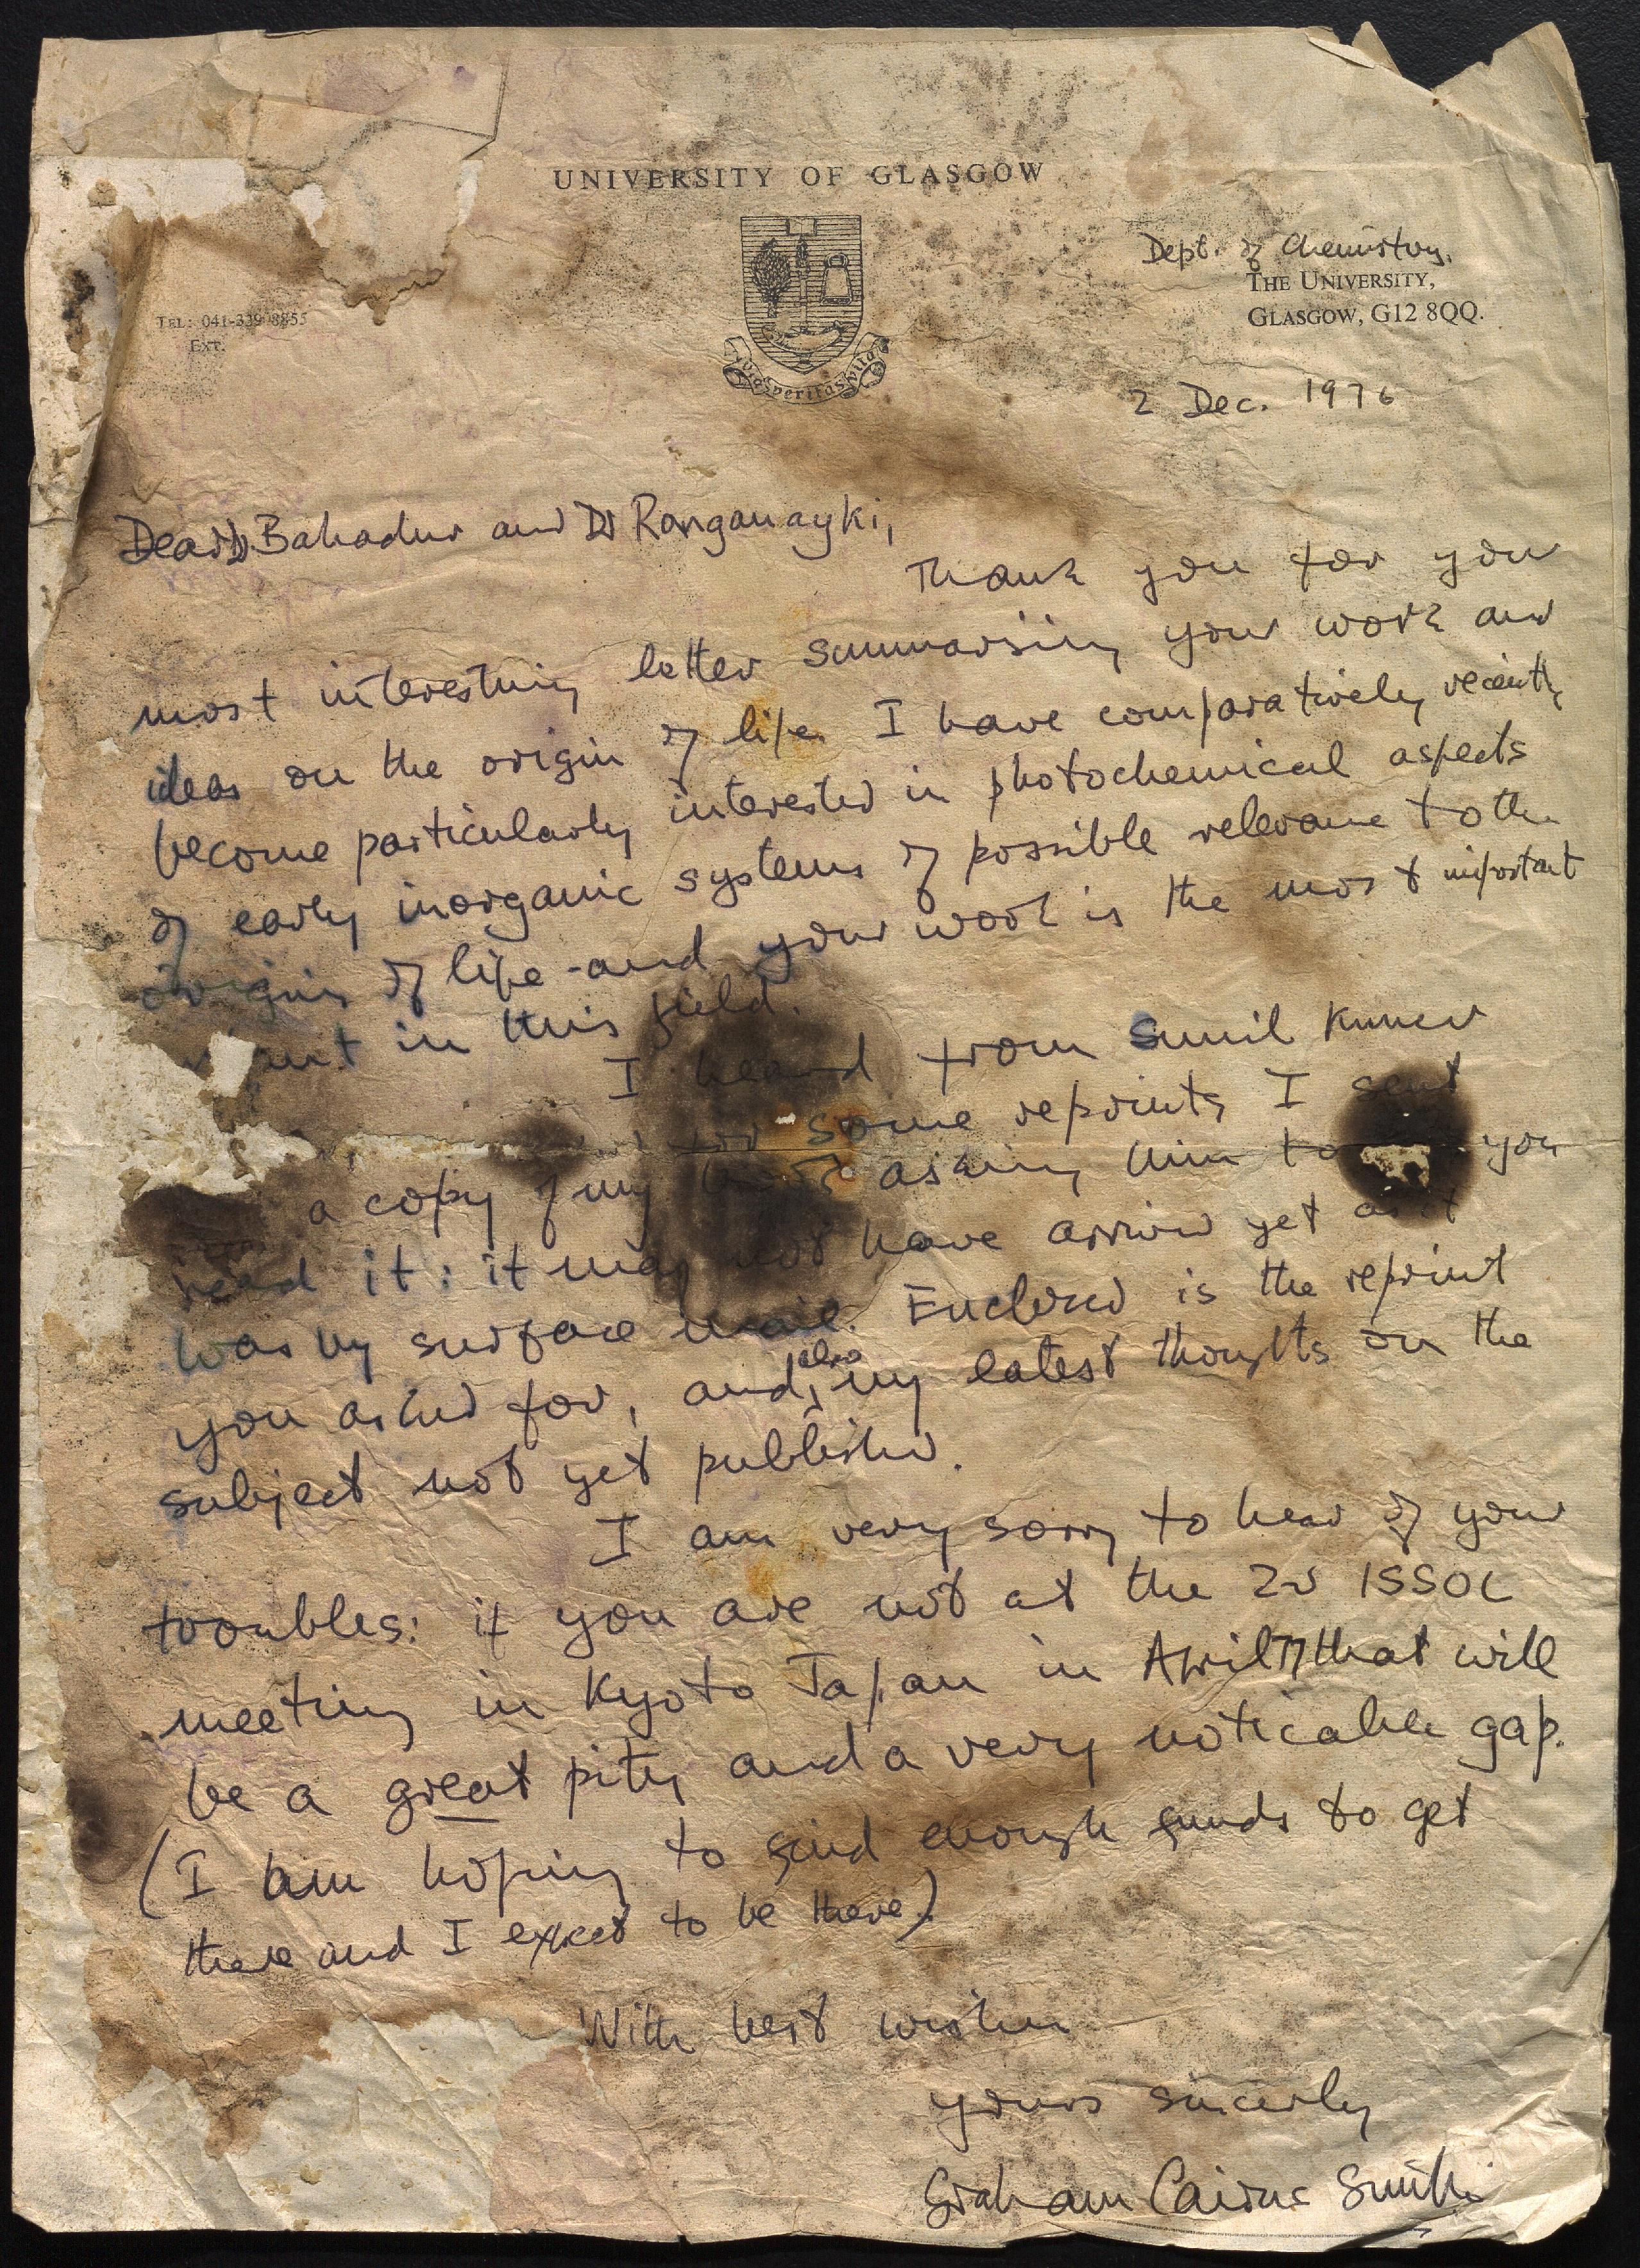 UNIVERSITY OF GLASGOW
Dept. of Chemistry,
THE UNIVERSITY,
GLASGOW, G12 8QQ.
TEL: 041-339 8855
EXT.
via veritas vita
2 Dec. 1976
Dear Dr Bahadur and Dr Ranganayki,
Thank you for your
most interesting letter summarsing your work and
ideas on the origin of life. I have comparatively recently
become particularly interested in photochemical aspects
of early inorganic systems of possible relevance to the
origin of life - and your work is the most important
in this field.
I heard from Sunil Kumer
for some reprints I sent
a copy of my book asking him to you
read it: it may not have arrived yet as it
was by surface mail. Enclosed is the reprint
you asked for, and, also my latest thoughts on the
subject not yet published.
I am very sorry to hear of your
troubles: if you are not at the 2nd ISSOL
meeting in Kyoto Japan in April 77 that will
be a great pity and a very noticable gap.
(I am hoping to find enough funds to get
there and I expect to be there.)
With best wishes
yours sincerly
Graham Cairns Smith